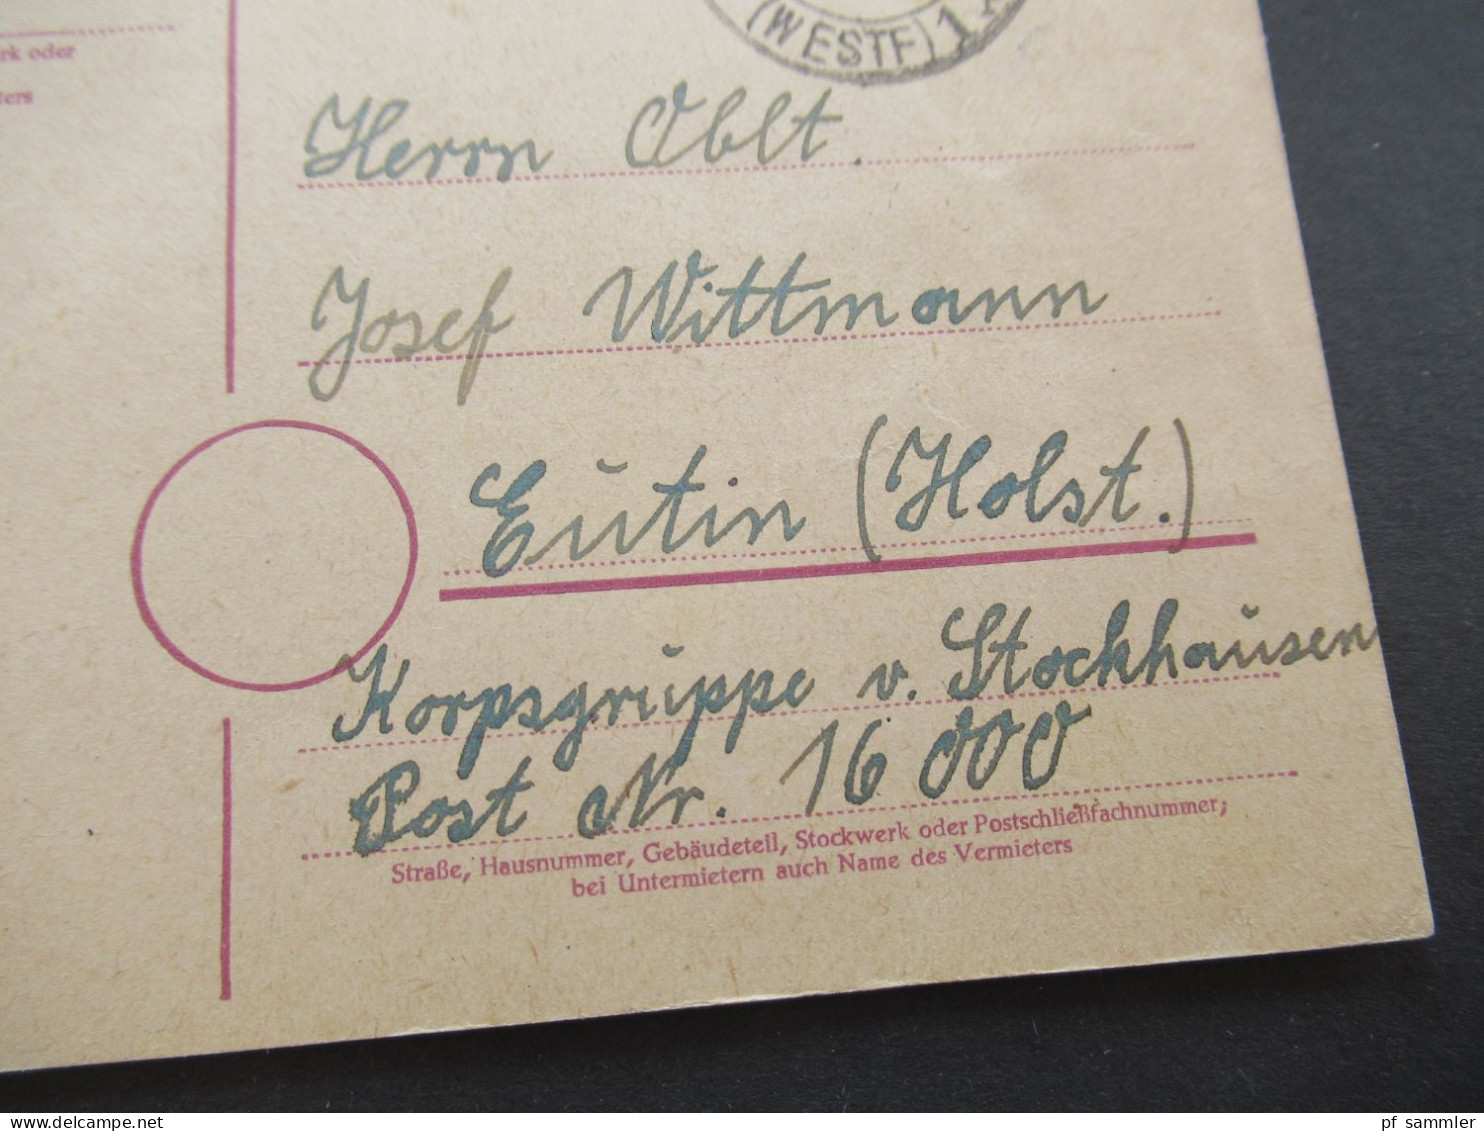 (WESTF) 1
rk oder
ters
Herrn Oblt.
Josef Wittmann
Eutin (Holst.)
Korpsgruppe v. Stockhausen
Post Nr. 16 000
Straße, Hausnummer, Gebäudeteil, Stockwerk oder Postschließfachnummer;
bei Untermietern auch Name des Vermieters
pf_sammler